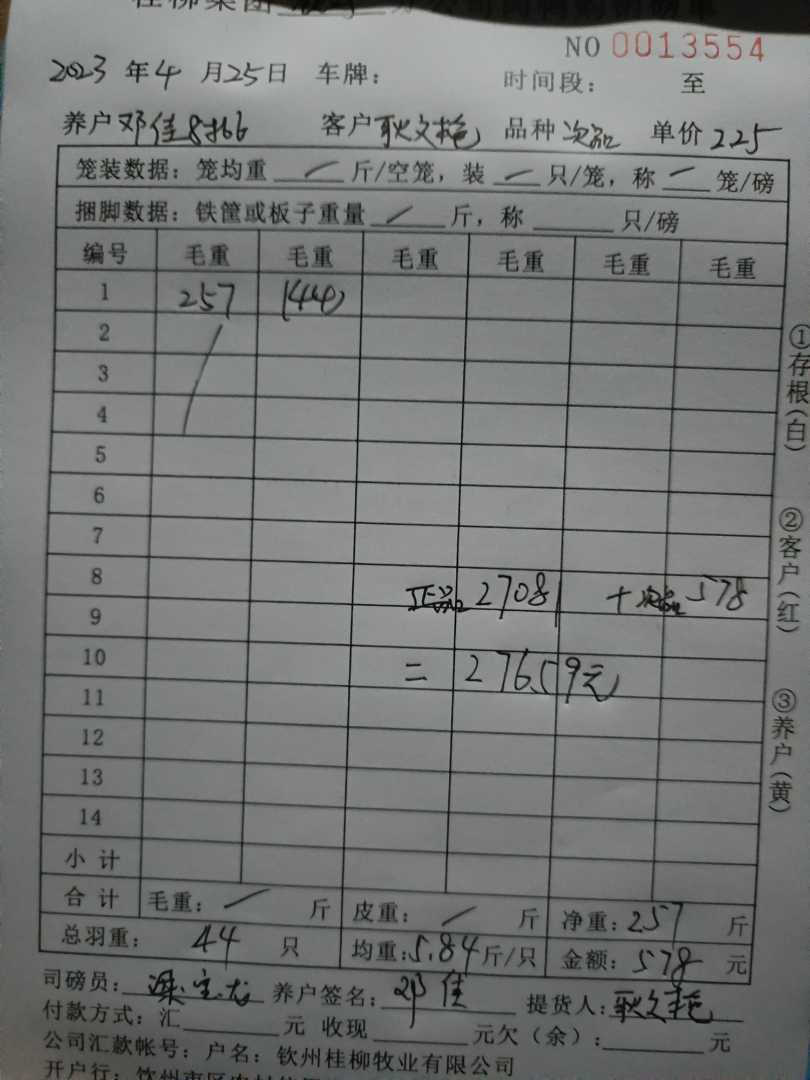 NO 0013554
2023 年 4 月 25 日 车牌： 时间段： 至
养户 邓佳 客户 耿文艳 品种 次品 单价 2.25
笼装数据：笼均重 / 斤/空笼，装 / 只/笼，称 / 笼/磅
捆脚数据：铁筐或板子重量 / 斤，称 只/磅
编号 毛重 毛重 毛重 毛重 毛重 毛重
1 257 (44)
2
3
4
5
6
7
8 正品 27081 + 次品 578
9
10 = 27659元
11
12
13
14
小 计
合 计 毛重： / 斤 皮重： / 斤 净重：257 斤
总羽重： 44 只 均重：5.84 斤/只 金额：578 元
司磅员： 养户签名：邓佳 提货人：耿文艳
付款方式：汇 元 收现 元欠（余）： 元
公司汇款帐号：户名：钦州桂柳牧业有限公司
开户行：
①存根(白)
②客户(红)
③养户(黄)